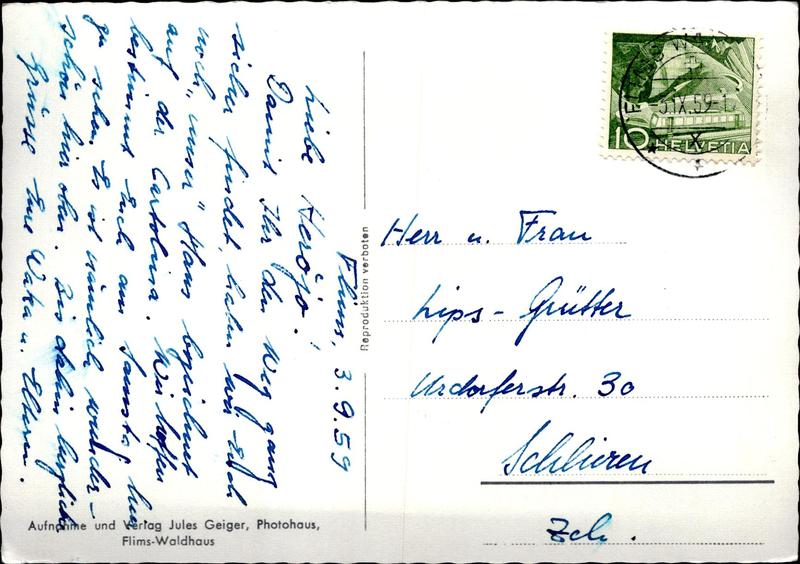 Flims, 3.9.59
Liebe
Damit Ihr den Weg ganz
sicher findet, haben wir Euch
noch „unser" Haus bezeichnet
auf der Cartolina. Wir hoffen
bestimmt Euch am Samstag hier
zu sehen. Es ist nämlich wunder-
schön hier oben. Bis dahin herzliche
Grüsse Eure Waka u. Eltern.
Reproduktion verboten
10 HELVETIA
IX.59
Herr u. Frau
Lips-Grütter
Urdorferstr. 30
Schlieren
Zch.
Aufnahme und Verlag Jules Geiger, Photohaus,
Flims-Waldhaus